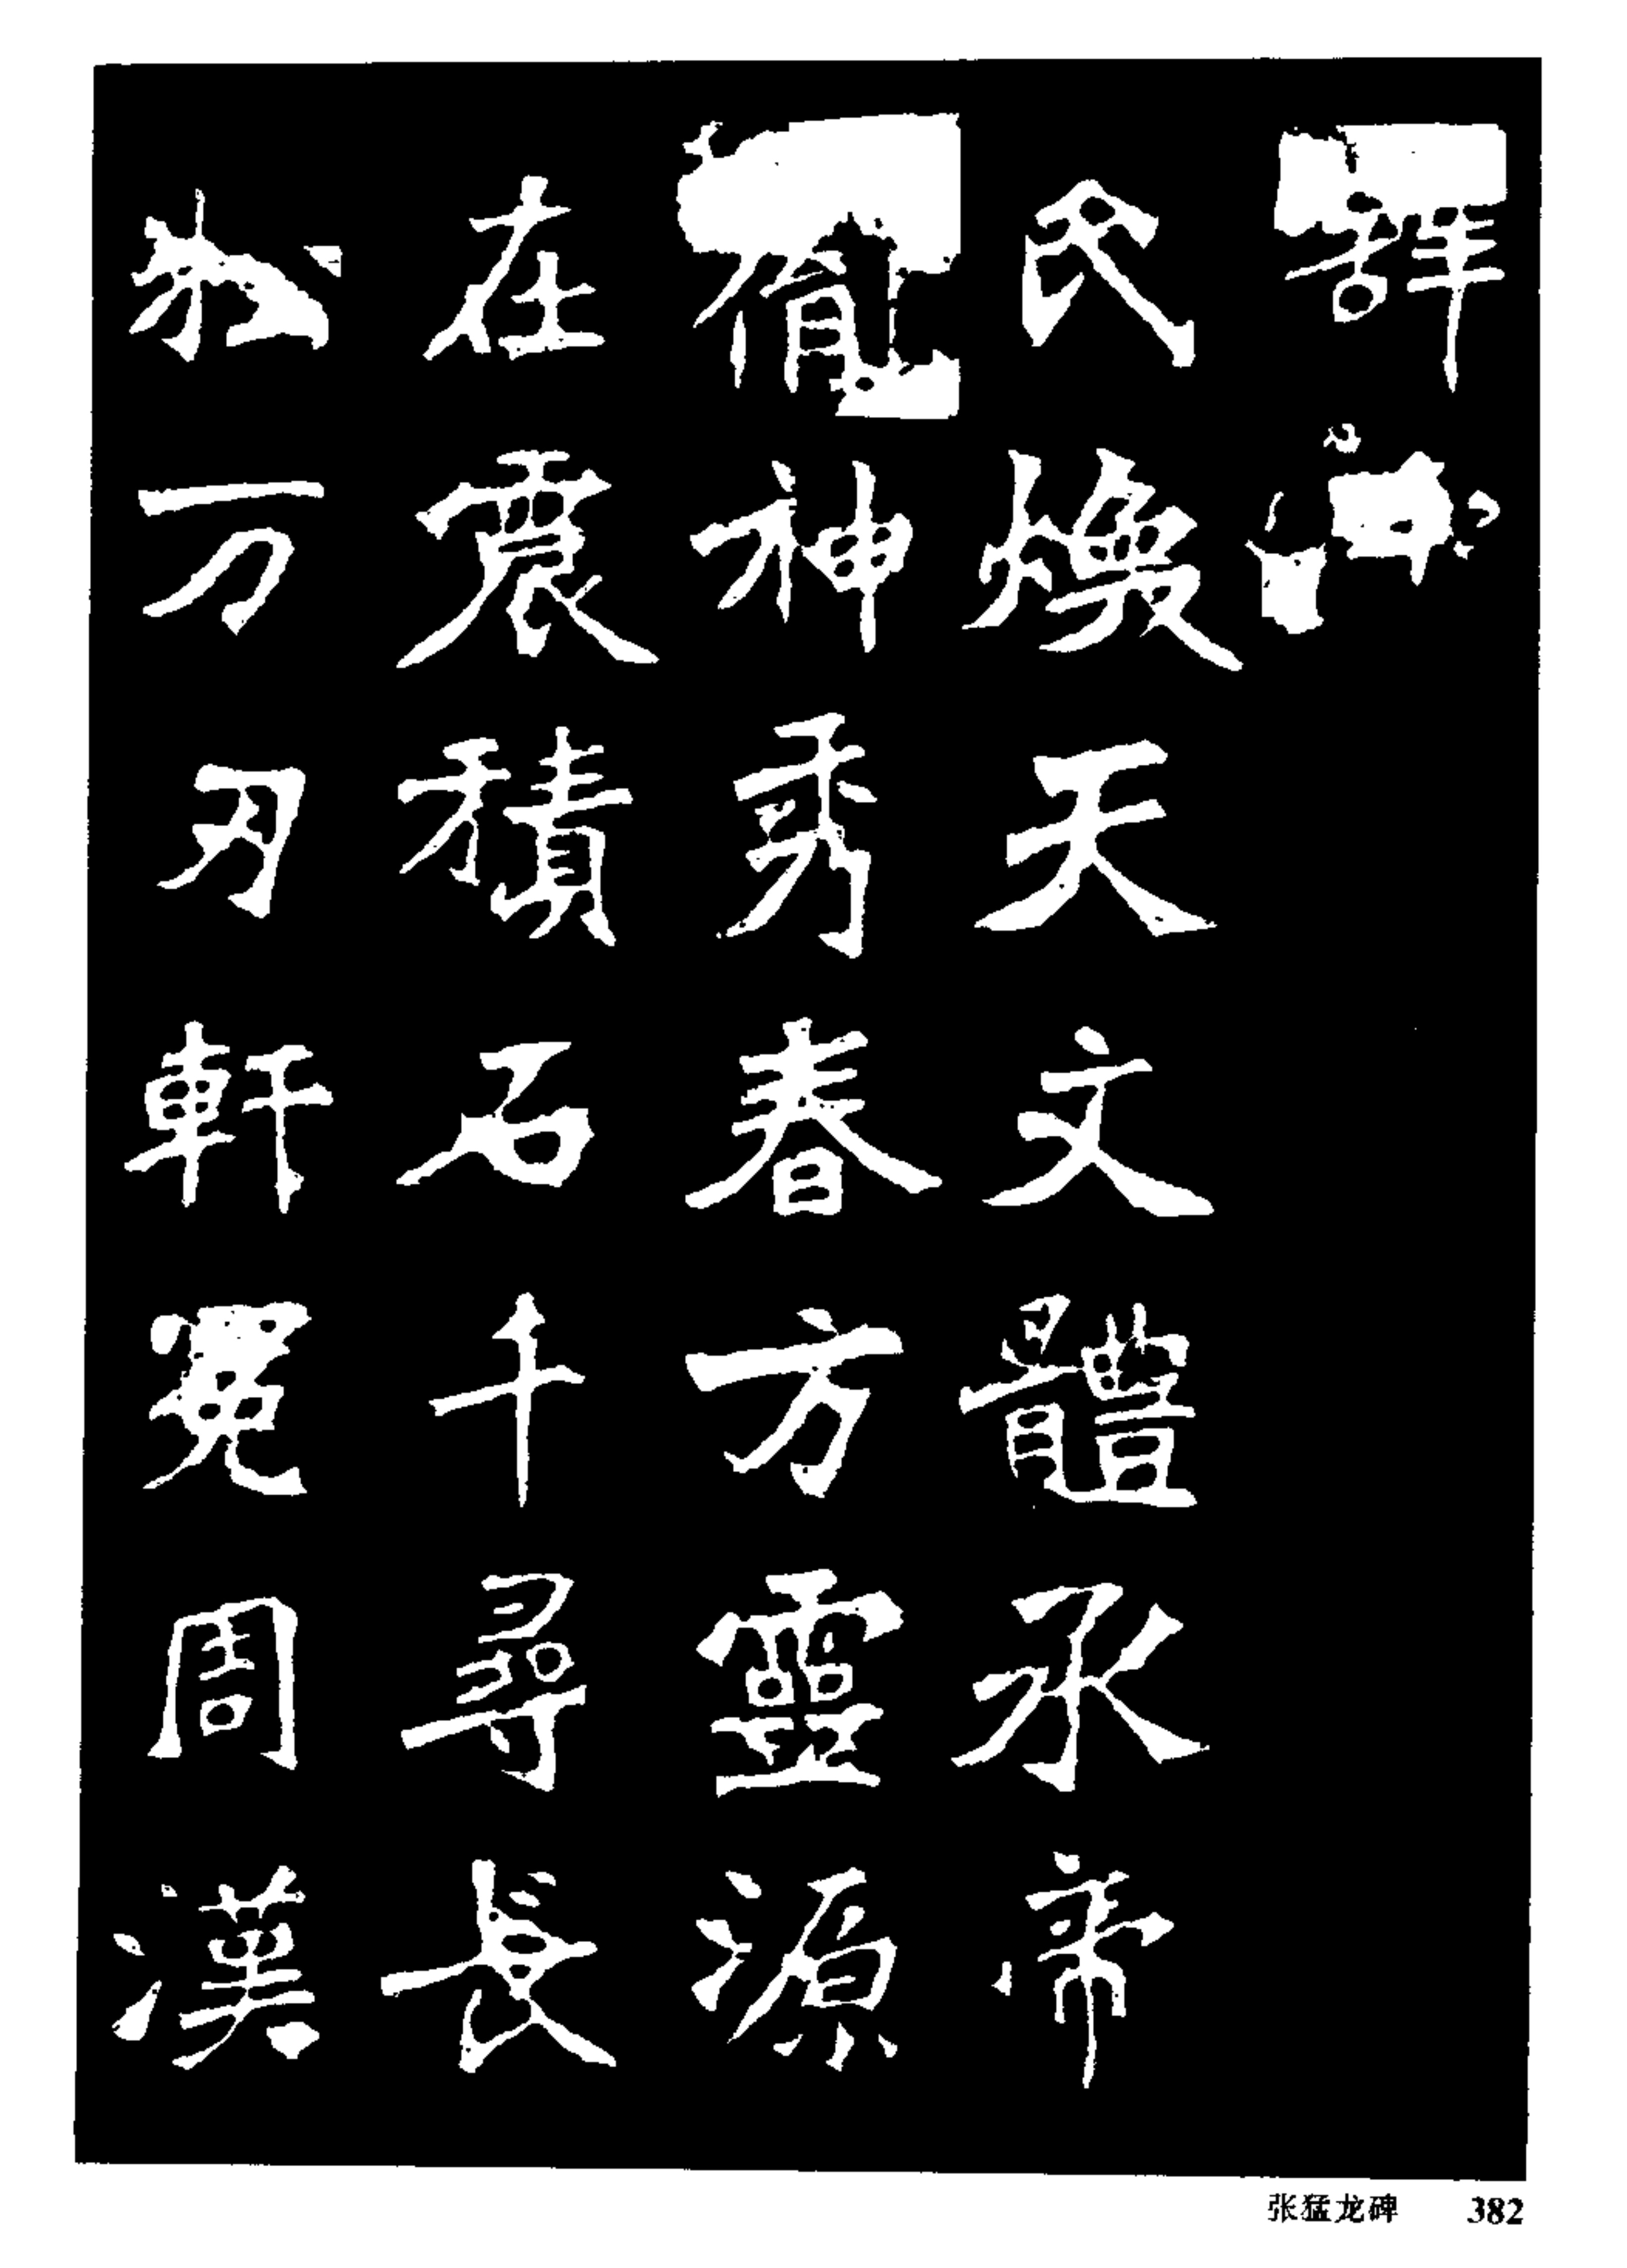 辭曰
氏煥天文體承帝
胤神秀春方靈源
在震積石千尋長
松万刃軒冕周漢
张猛龙碑 382